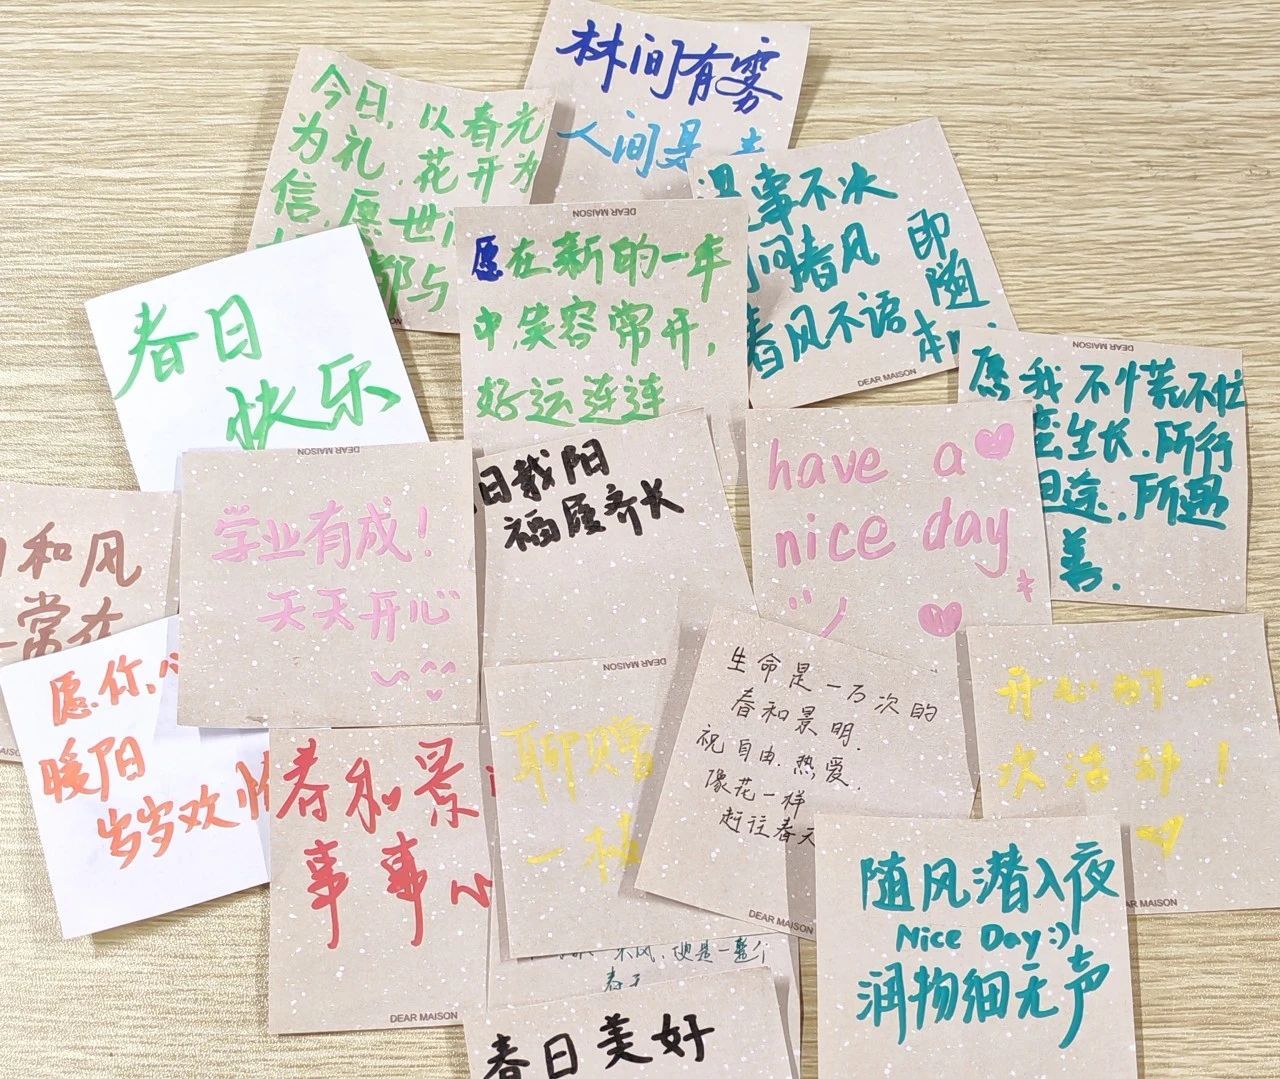 林间有雾
人间是
今日，以春光
为礼，花开为
信，愿世
都与
DEAR MAISON
愿在新的一年
中，笑容常开，
好运连连
事不决
问春风
春风不语
即
随
本
DEAR MAISON
春日
快乐
DEAR MAISON
愿我不慌不忙
生长，所行
坦途，所遇
善.
have a
nice day
DEAR MAISON
学业有成！
天天开心
日载阳
福履齐长
和风
常在
愿你
暖阳
岁岁欢愉
DEAR MAISON
聊赠
一枝
生命是一万次的
春和景明.
祝自由.热爱.
像花一样
赶往春天
DEAR MAISON
开心的一
次活动！
DEAR MAISON
春和景
事事
DEAR MAISON
随风潜入夜
Nice Day:)
润物细无声
风，便是一整个
春天
春日美好